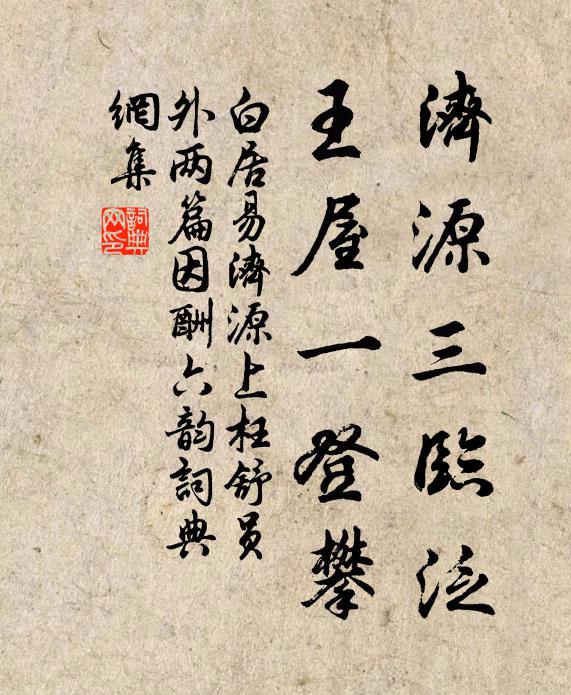 濟源三臨泛
王屋一登攀
白居易濟源上枉舒员
外两篇因酬六韵詞典
網集
詞典
网印